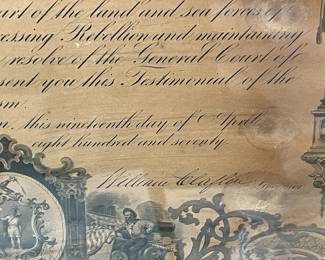 part of the land and sea forces of
ressing Rebellion and maintaining
resolve of the General Court of
sent you this Testimonial of the
ism.
this nineteenth day of April
eight hundred and seventy
William Claflin